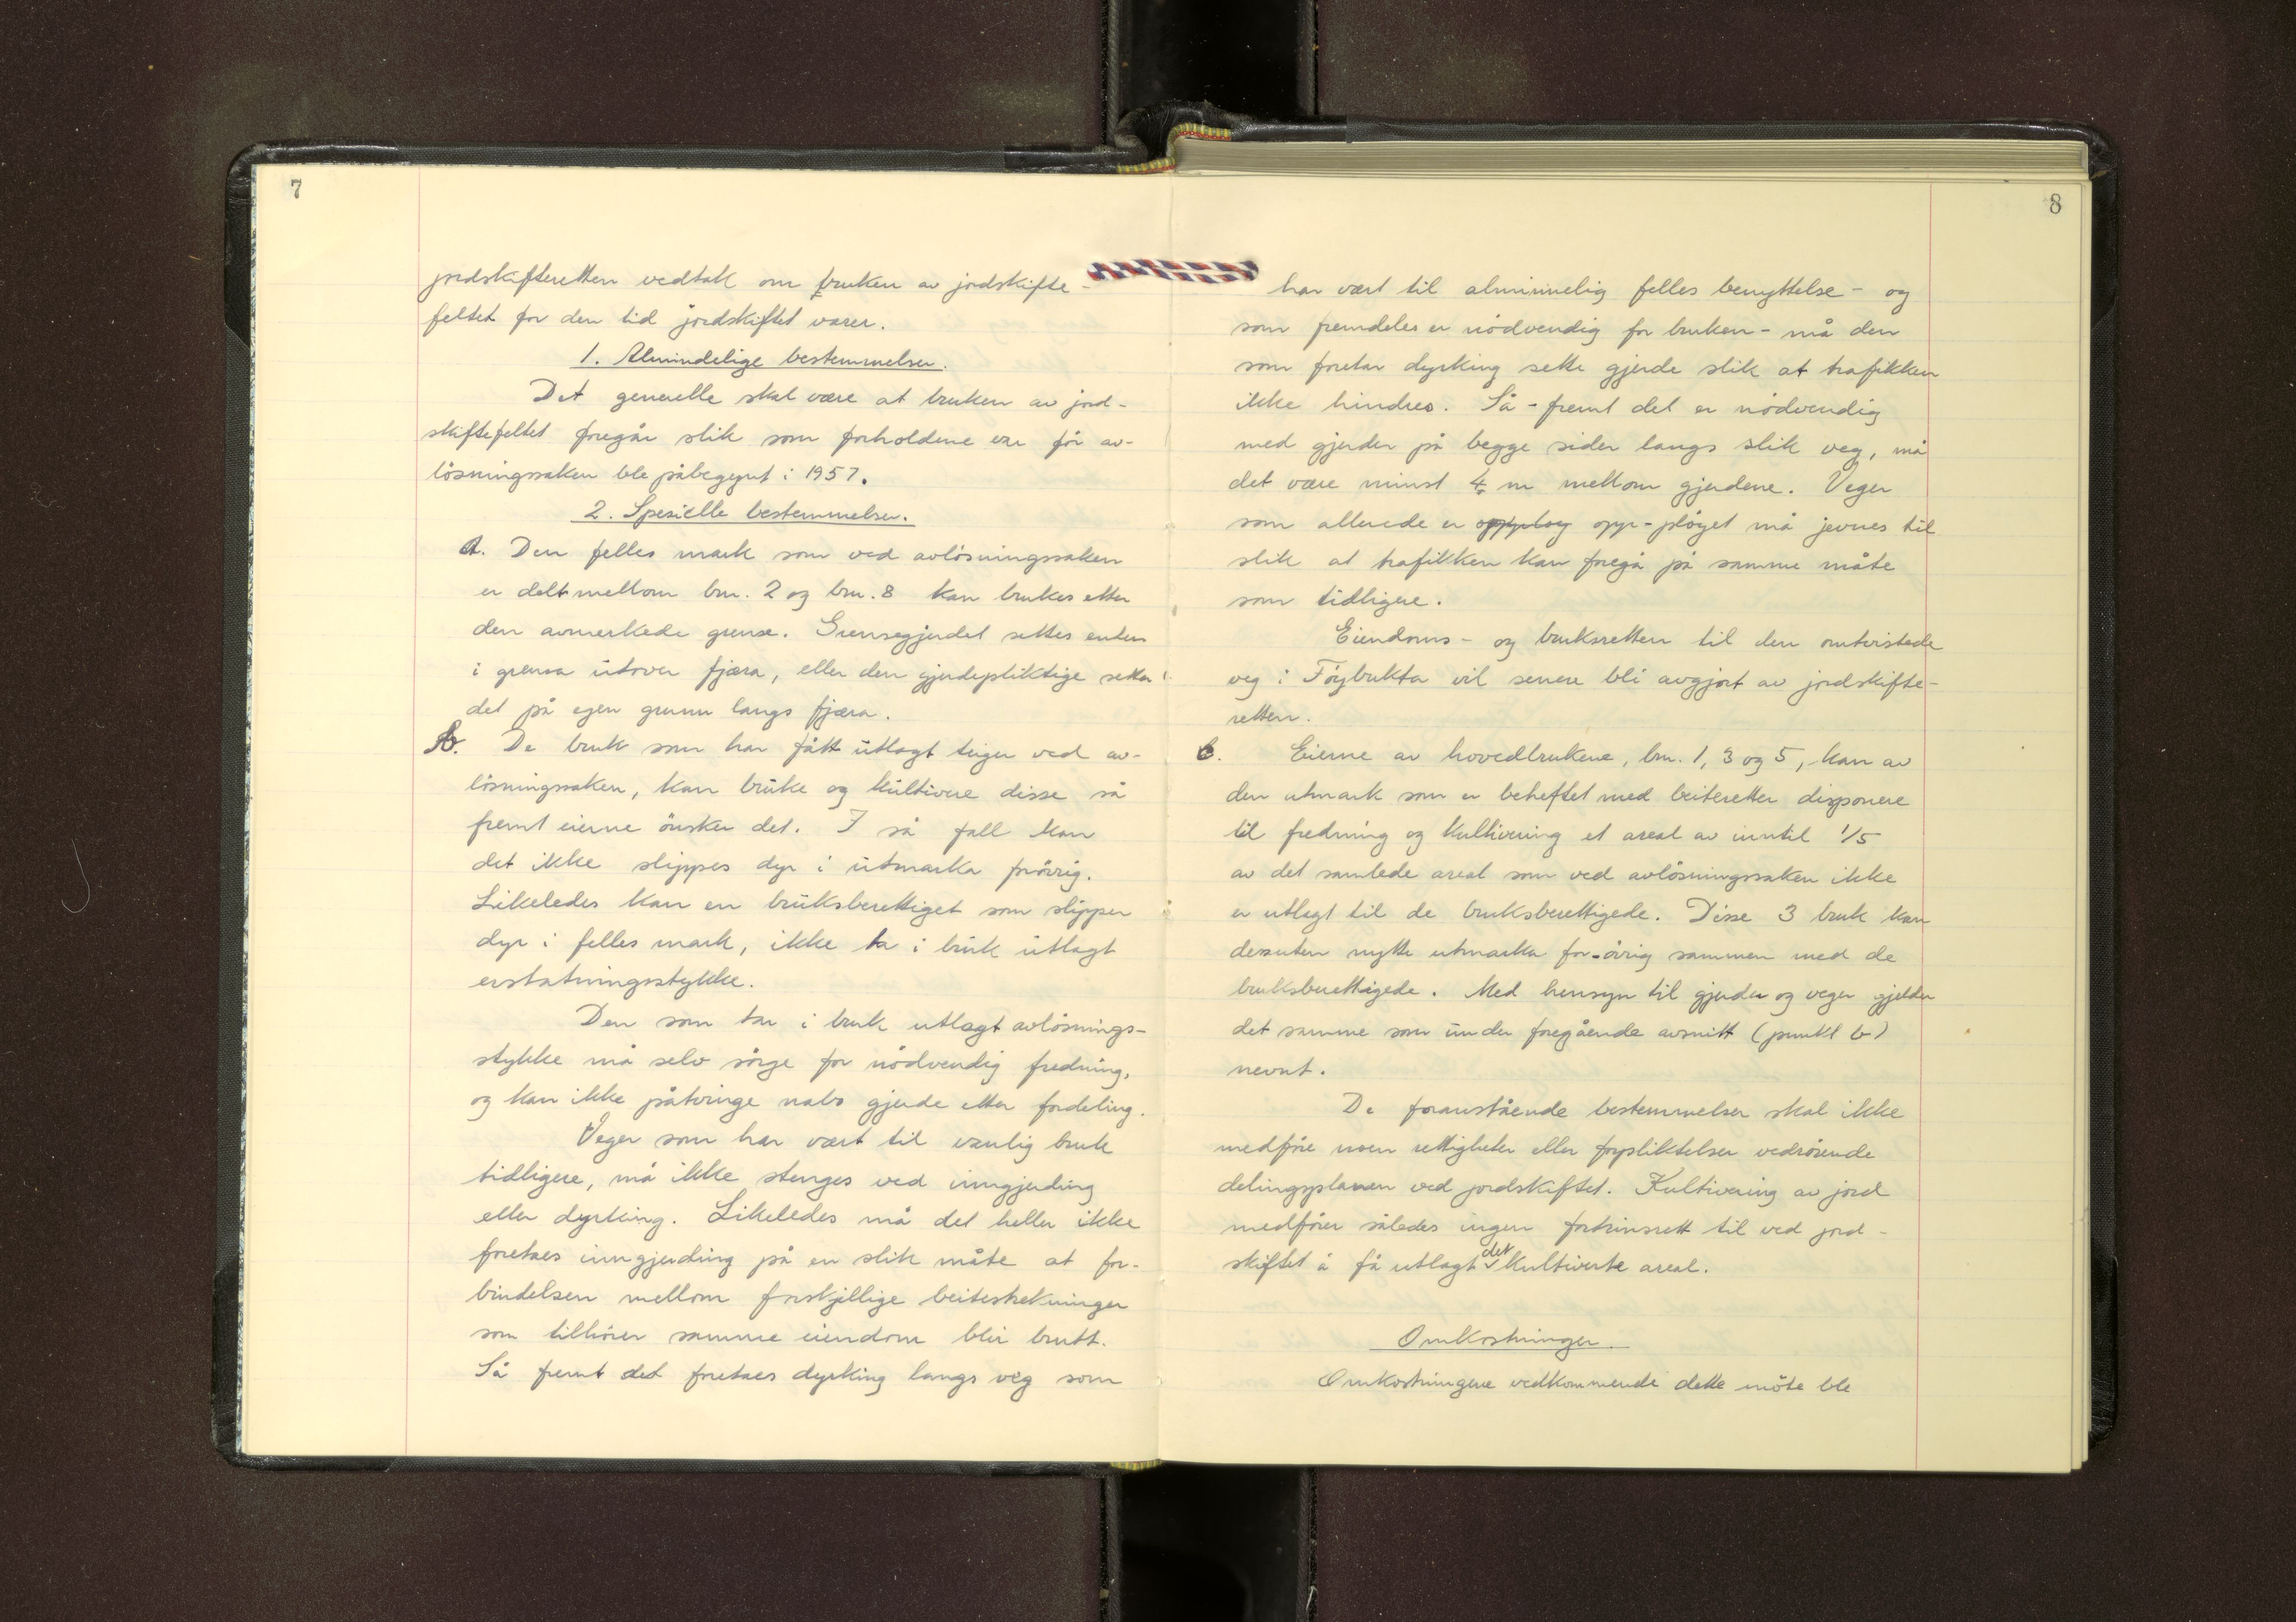 7
jordskifteretten vedtak om bruken av jordskifte-
feltet for den tid jordskiftet varer.
1. Almindelige bestemmelser.
Det generelle skal være at bruken av jord-
skiftefeltet foregår slik som forholdene var før av-
løsningssaken ble påbegynt i 1957.
2. Spesielle bestemmelser.
a. Den felles mark som ved avløsningssaken
er delt mellom bnr. 2 og bnr. 8 kan brukes etter
den avmerkede grense. Grensegjerdet settes enten
i grensa utover fjæra, eller den gjerdepliktige setter
det på egen grunn langs fjæra.
b. De bruk som har fått utlagt teiger ved av-
løsningssaken, kan bruke og kultivere disse så
fremt eierne ønsker det. I så fall kan
det ikke slippes dyr i utmarka forøvrig.
Likeledes kan en bruksberettiget som slipper
dyr i felles mark, ikke ta i bruk utlagt
erstatningsstykke.
Den som tar i bruk utlagt avløsnings-
stykke må selv sørge for nødvendig fredning,
og kan ikke påtvinge nabo gjerde etter fordeling.
Veger som har vært til vanlig bruk
tidligere, må ikke stenges ved inngjerding
eller dyrking. Likeledes må det heller ikke
foretaes inngjerding på en slik måte at for-
bindelsen mellom forskjellige beitestrekninger
som tilhører samme eiendom blir brutt.
Så fremt det foretaes dyrking langs veg som
8
har vært til alminnelig felles benyttelse - og
som fremdeles er nødvendig for bruken - må den
som foretar dyrking sette gjerde slik at trafikken
ikke hindres. Så-fremt det er nødvendig
med gjerder på begge sider langs slik veg, må
det være minst 4 m mellom gjerdene. Veger
som allerede er oppløy opp-pløget må jevnes til
slik at trafikken kan foregå på samme måte
som tidligere.
Eiendoms- og bruksretten til den omtvistede
veg i Føybukta vil senere bli avgjort av jordskifte-
retten.
c. Eierne av hovedbrukene, bnr. 1, 3 og 5, kan av
den utmark som er beheftet med beiteretter disponere
til fredning og kultivering et areal av inntil 1/5
av det samlede areal som ved avløsningssaken ikke
er utlagt til de bruksberettigede. Disse 3 bruk kan
dessuten nytte utmarka for-øvrig sammen med de
bruksberettigede. Med hensyn til gjerder og veger gjelder
det samme som under foregående avsnitt (punkt b)
nevnt.
De foranstående bestemmelser skal ikke
medføre noen rettigheter eller forpliktelser vedrørende
delingsplanen ved jordskiftet. Kultivering av jord
medfører således ingen fortrinsrett til ved jord-
skiftet å få utlagt det kultiverte areal.
Omkostninger.
Omkostningene vedkommende dette møte ble